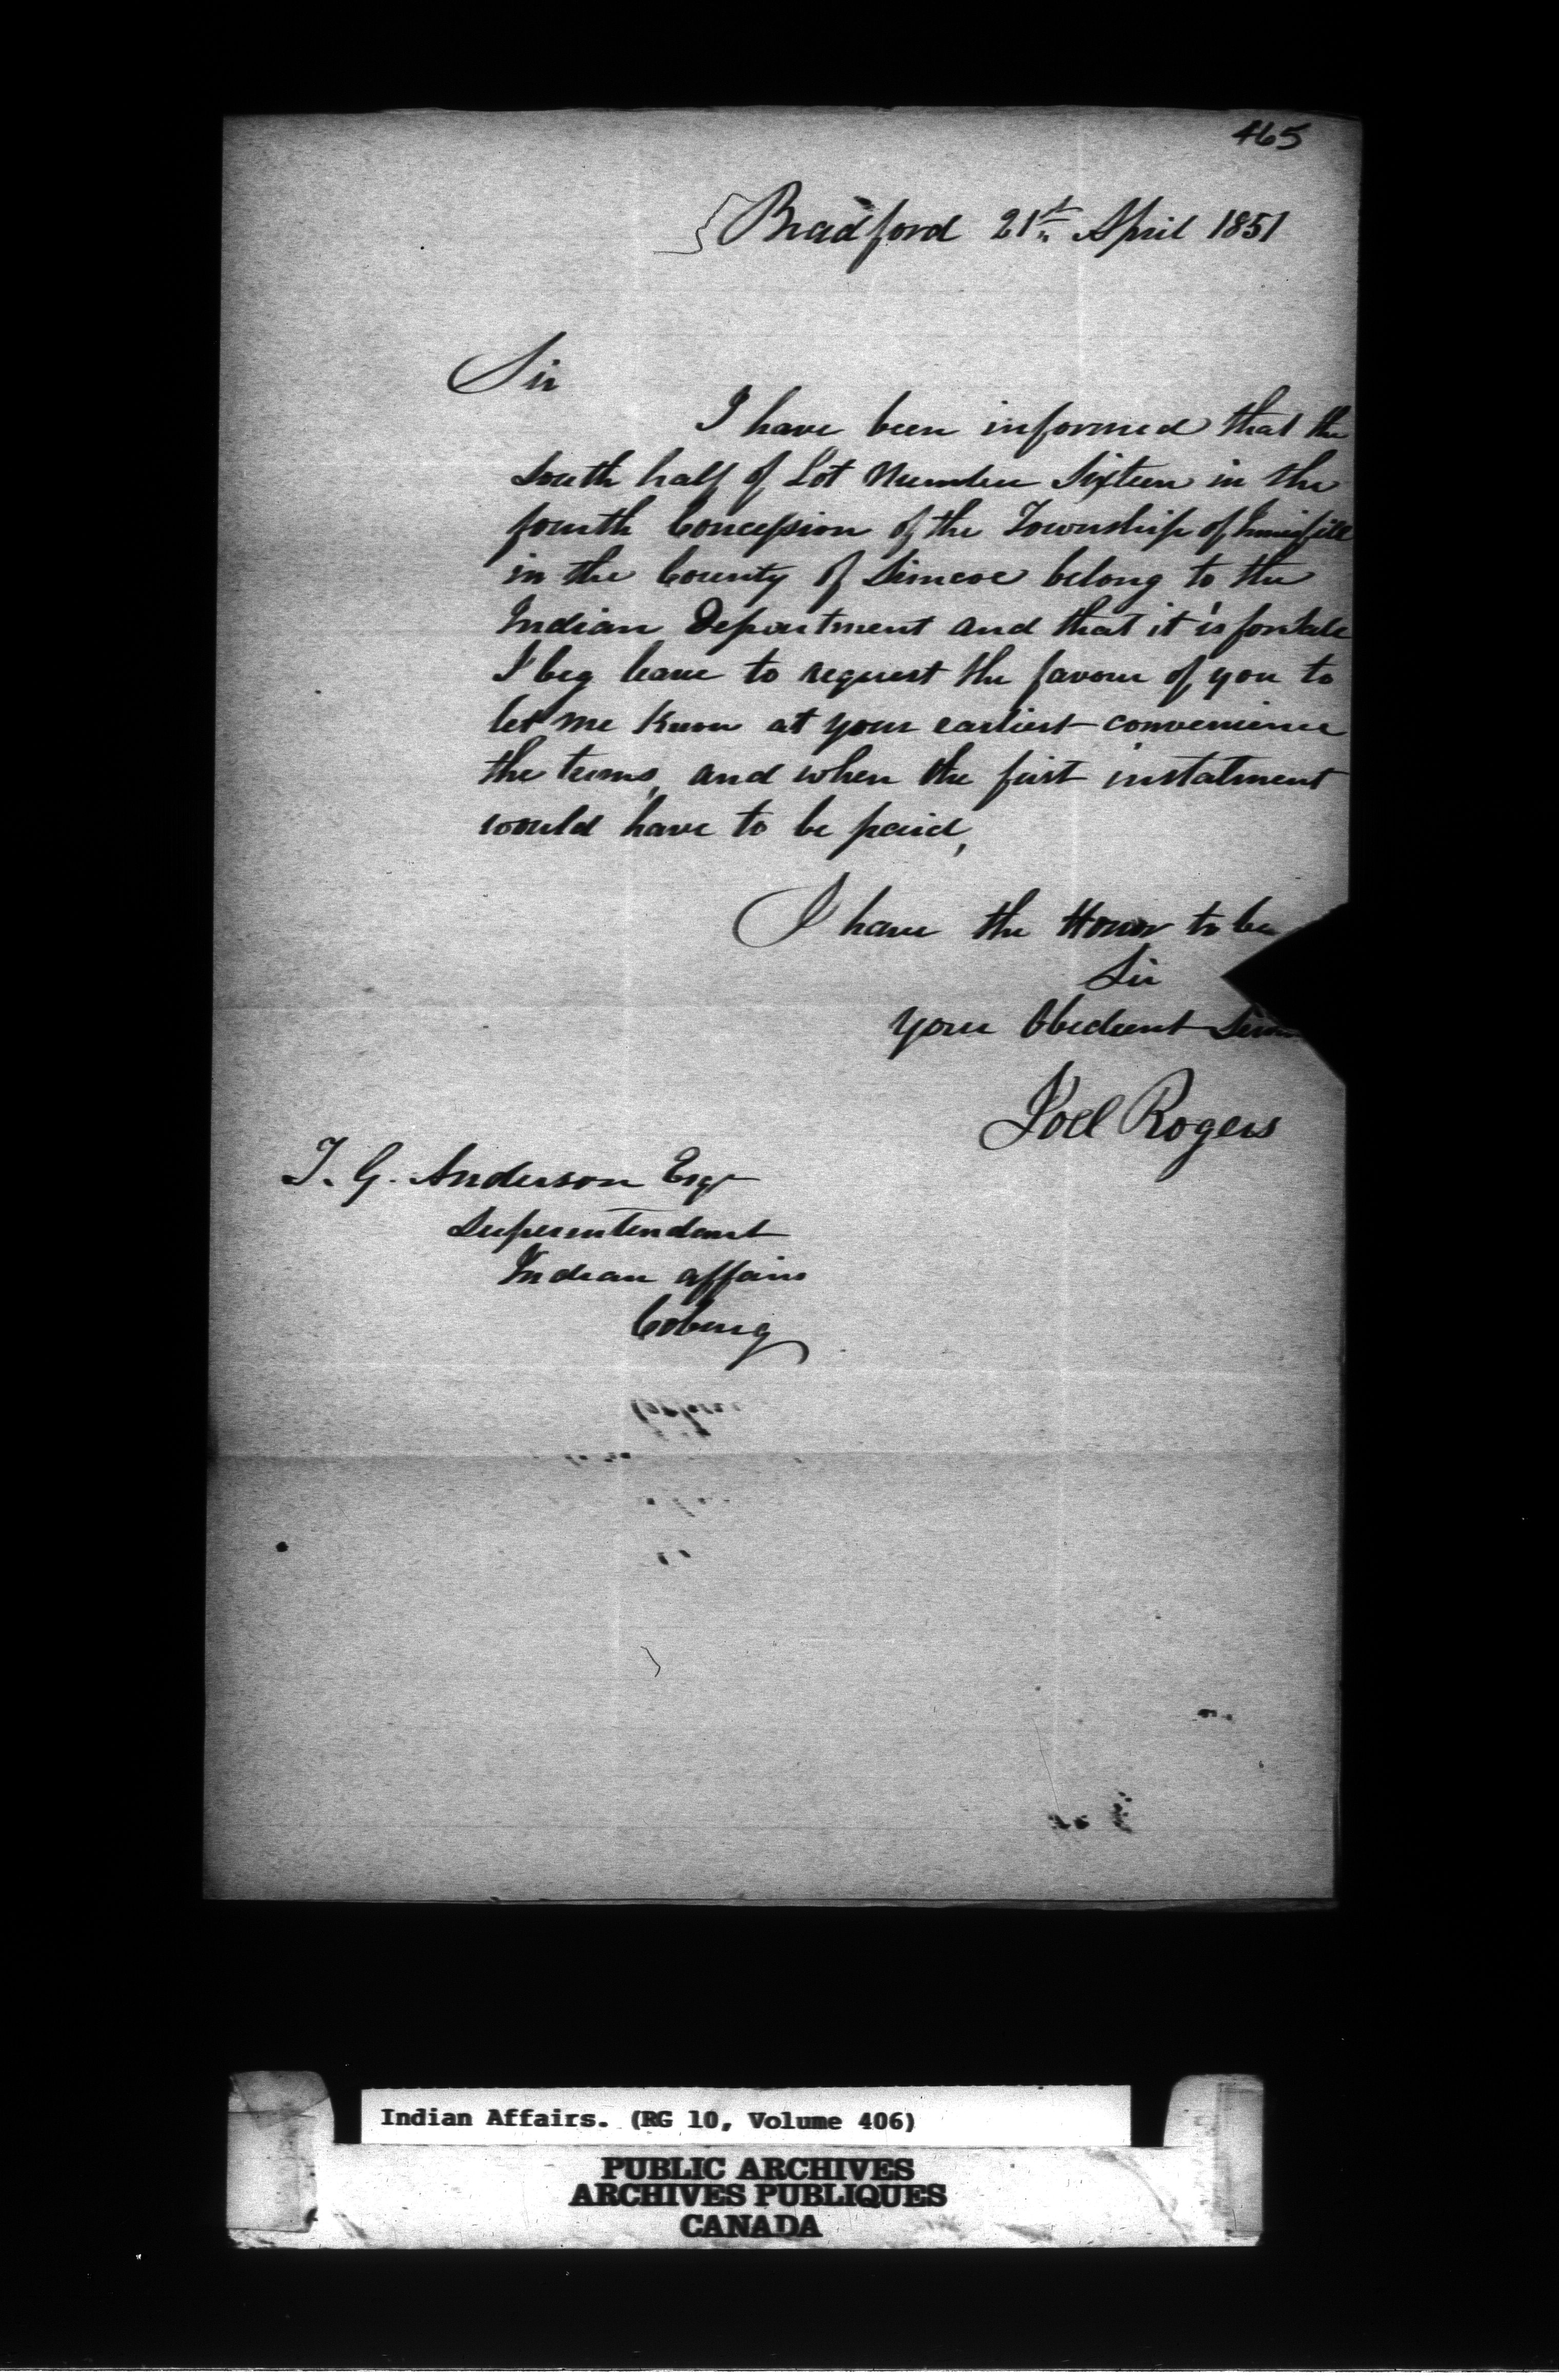 465
Bradford 21st April 1851
Sir
I have been informed that the
South half of Lot Number Sixteen in the
fourth Concession of the Township of Innisfill
in the County of Simcoe belong to the
Indian Department and that it is for Sale
I beg leave to request the favour of you to
let me Know at your earliest convenience
the terms, and when the first instalment
would have to be paid,
I have the Honor to be
Sir
Your Obedient
Joel Rogers
T. G. Anderson Esqr
Superintendant
Indian affairs
Coburg
Indian Affairs. (RG 10, Volume 406)
PUBLIC ARCHIVES
ARCHIVES PUBLIQUES
CANADA